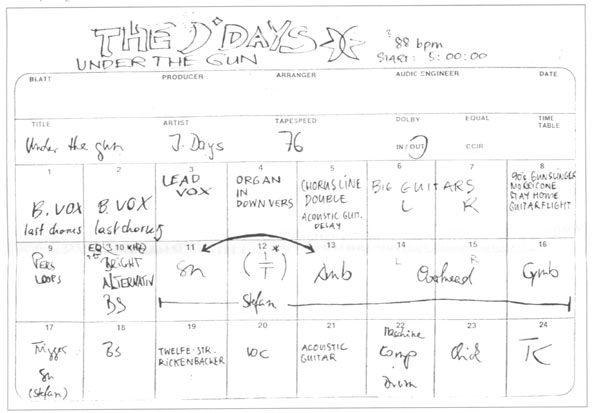 THE J'DAYS
UNDER THE GUN
88 bpm
START: 5:00:00
BLATT PRODUCER ARRANGER AUDIO ENGINEER DATE
TITLE ARTIST TAPESPEED DOLBY EQUAL TIME TABLE
Under the gun J. Days 76 IN / OUT CCIR
1 2 3 4 5 6 7 8
B. VOX last chorus
B. VOX last chorus
LEAD VOX
ORGAN IN DOWN VERS
CHORUS LINE DOUBLE ACOUSTIC GUIT. DELAY
BIG GUITARS L R
90's GUNSLINGER MORRICONE STAY HOME GUITARFLIGHT
9 10 11 12 13 14 15 16
PERS LOOPS
EQ BRIGHT ALTERNATIV BS
Sn
(1/T) *
Amb
L Overhead R
Cymb
Stefan
17 18 19 20 21 22 23 24
Trigger Sn (Stefan)
BS
TWELFE-STR. RICKENBACKER
VOC
ACOUSTIC GUITAR
Maschine Comp Drum
Click
TC